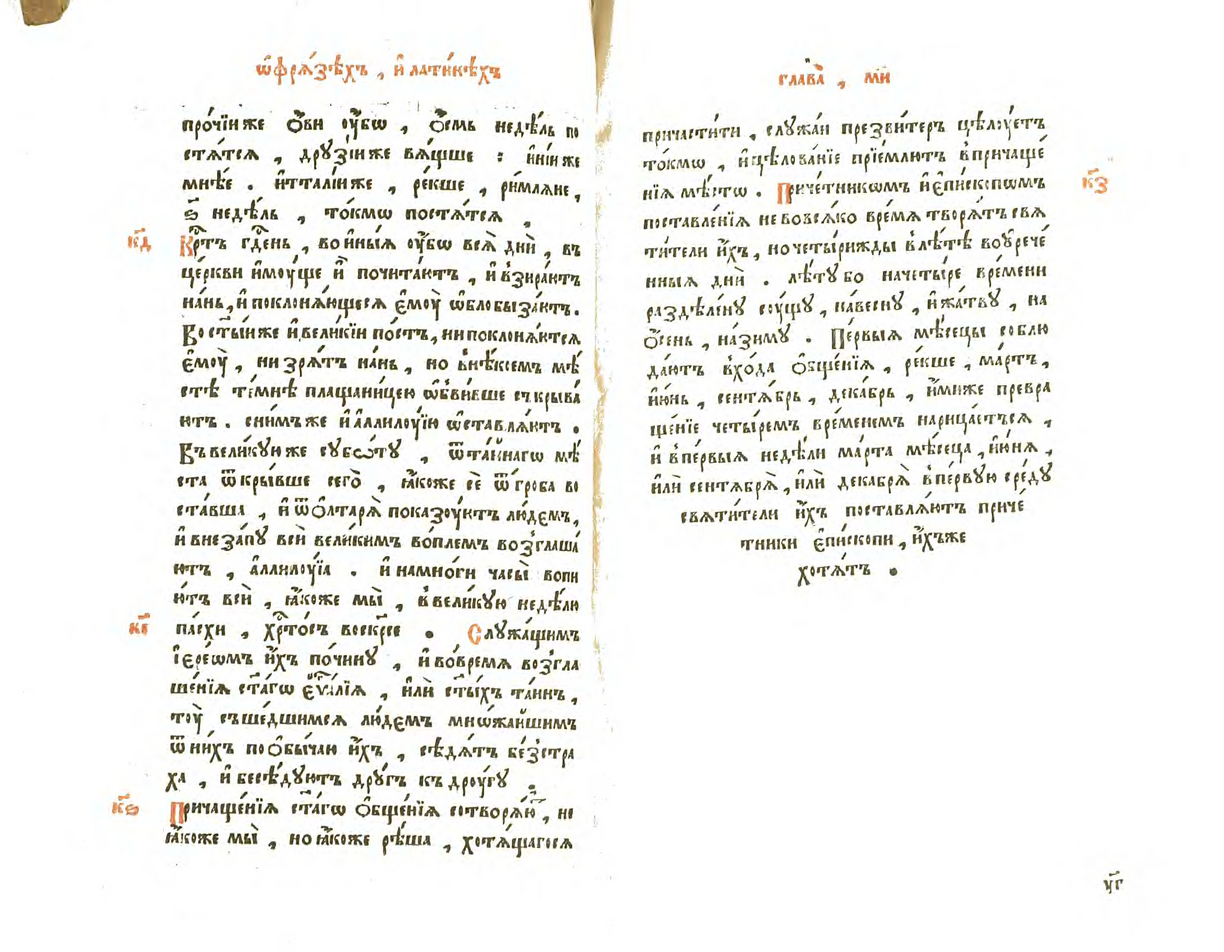 ѡ҆фрѧ́зѣхъ , и҆ лати́нѣхъ
про́чїи же ѻ҆́ви ᲂу҆́бѡ , ѻ҆́смь недѣ́ль по
стѧ́тсѧ , дрꙋзі́и же вѧ́щше : и҆ні́и же
мнѣ́е . и҆тталі́и же , ре́кше , ри́млѧне ,
ѕ҃ недѣ́ль , то́кмѡ постѧ́тсѧ ,
к҃д
Крⷭ҇тъ гдⷭ҇ень , во и҆ны́ѧ ᲂу҆́бѡ всѧ̀ дни̑ , въ
це́ркви и҆мᲂу́ще и҆̀ почита́ютъ , и҆ взира́ютъ
на́нь , и҆ поклонѧ́ющесѧ є҆мᲂу̀ ѡ҆блобыза́ютъ .
Во ст҃ы́и же и҆ вели́кїи по́стъ , ни поклонѧ́ютсѧ
є҆мᲂу̀ , ни зрѧ́тъ на́нь , но в нѣ́коемъ мѣ́
стѣ те́мнѣ плащани́цею ѡ҆бви́вше съкрыва́
ютъ . сни́мъ же и҆ а҆ллилᲂу́їю ѡ҆ставлѧ́ютъ .
Въ вели́кꙋю же сꙋбѡ́тꙋ , ѿ та́йнагѡ мѣ́
ста ѿкры́вше сего̀ , ꙗ҆́коже сѐ ѿ гро́ба во
ста́вша , и҆ ѿ ѻ҆лтарѧ̀ показᲂу́ютъ лю́демъ ,
и҆ внеза́пꙋ вси̑ вели́кимъ во́племъ возглаша́
ютъ , а҆ллилᲂу́їа . и҆ на мно́ги часы̀ вопи
ю́тъ вси̑ , ꙗ҆́коже мы̀ , в вели́кꙋю недѣ́лю
к҃є
па́схи , хрⷭ҇то́съ воскр҃се . Слꙋжа́щимъ
і҆ере́ѡмъ и҆́хъ по чи́нꙋ , и҆ во вре́мѧ возгла
ше́нїѧ ст҃а́гѡ є҆ѵⷢ҇лїѧ , и҆лѝ ст҃ы́хъ та́инъ ,
тᲂу̀ съше́дшимсѧ лю́демъ мнѡ́жайшимъ
ѿ ни́хъ по ѻ҆бы́чаю и҆́хъ , сѣдѧ́тъ без̾ стра
ха , и҆ бесѣ́дꙋютъ дрꙋ́гъ къ дрᲂу́гꙋ .
к҃ѕ
Причаще́нїѧ ст҃а́гѡ ѻ҆бще́нїѧ сотворѧ́ю , не
ꙗ҆́коже мы̀ , но ꙗ҆́коже рѣ́ша , хотѧ́щагосѧ
глава̀ , м҃и
причасти́ти , слꙋжа́и презви́теръ цѣлᲂу́етъ
то́кмѡ , и҆ цѣлова́нїе прїе́млютъ в причаще́
нїѧ мѣ́стѡ . Приче́тникѡмъ и҆ є҆пи́скопѡмъ
к҃з
поставле́нїѧ не во всѧ́ко вре́мѧ творѧ́тъ свѧ
ти́тели и҆́хъ , но четы́рижды в лѣ́тѣ во ᲂу҆рече́
нныѧ дни̑ . лѣ́тꙋ бо на четы́ре вре́мени
раздѣле́нꙋ сᲂу́щꙋ , на веснꙋ̀ , и҆ жа́твꙋ , на
ѻ҆́сень , на зи́мꙋ . Пе́рвыѧ мѣ́сецы соблю
да́ютъ вхо́да ѻ҆бще́нїѧ , ре́кше , ма́ртъ ,
и҆ю́нь , сентѧ́брь , дека́брь , и҆́миже превра
ще́нїе четы́ремъ временемъ нарица́етъсѧ ,
и҆ в пе́рвыѧ недѣ́ли ма́рта мѣ́сеца , и҆ю́нѧ ,
и҆лѝ сентѧбрѧ̀ , и҆лѝ декабрѧ̀ в пе́рвꙋю сре́дꙋ
свѧти́тели и҆́хъ поставлѧ́ютъ приче́
тники є҆пи́скопи , и҆́хъже
хотѧ́тъ .
ѵ҃г